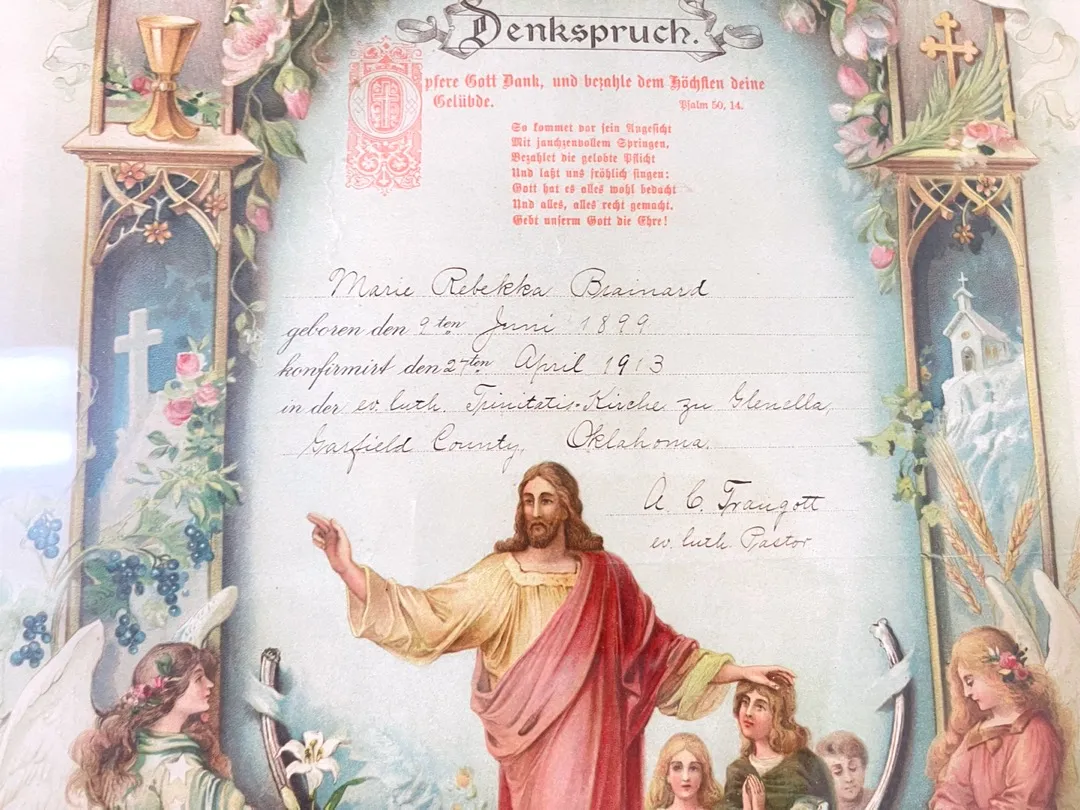 Denkspruch.
Opfere Gott Dank, und bezahle dem Höchsten deine
Gelübde.
Psalm 50, 14.
So kommet vor sein Angesicht
Mit jauchzenvollem Springen,
Bezahlet die gelobte Pflicht
Und laßt uns fröhlich singen:
Gott hat es alles wohl bedacht
Und alles, alles recht gemacht.
Gebt unserm Gott die Ehre!
Marie Rebekka Brainard
geboren den 9ten Juni 1899
konfirmirt den 27ten April 1913
in der ev. luth. Trinitatis-Kirche zu Glenella,
Garfield County, Oklahoma.
A. C. Traugott
ev. luth. Pastor